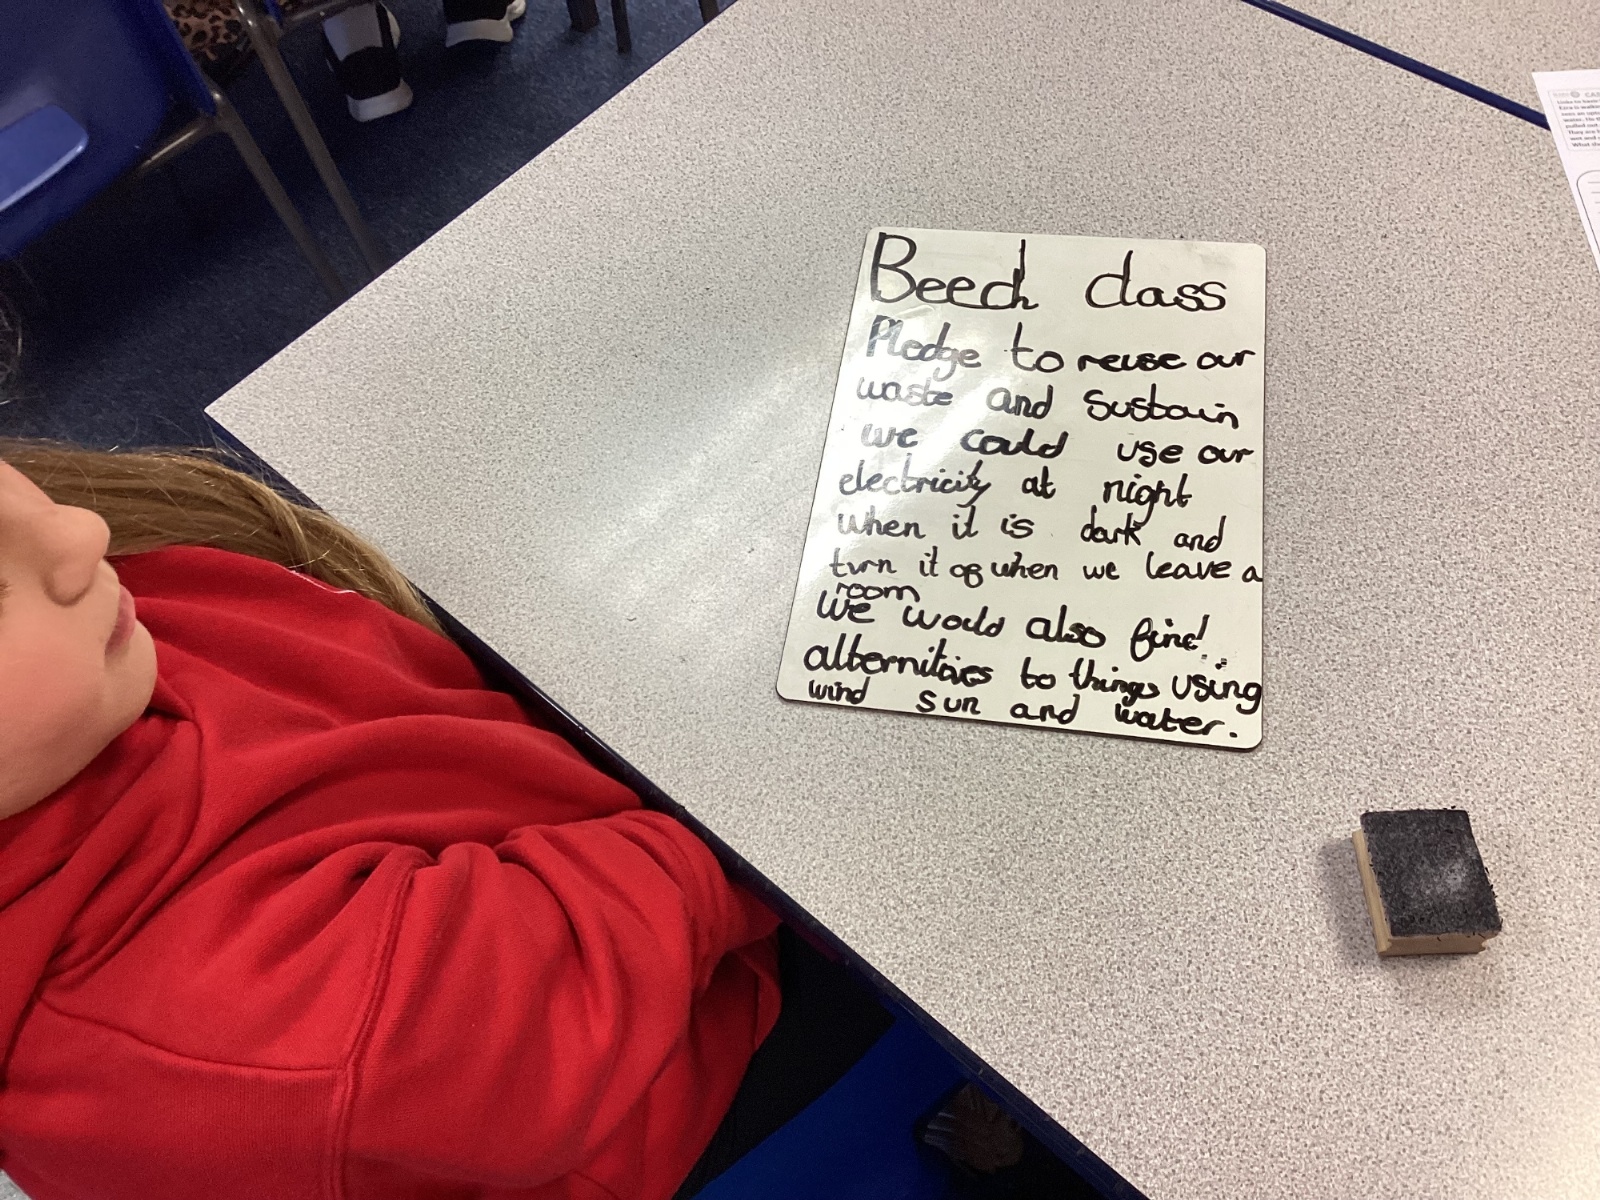 Beech class
Pledge to reuse our
waste and sustain
we could use our
electricity at night
when it is dark and
turn it of when we leave a
room
We would also find
alternitives to things using
wind sun and water.